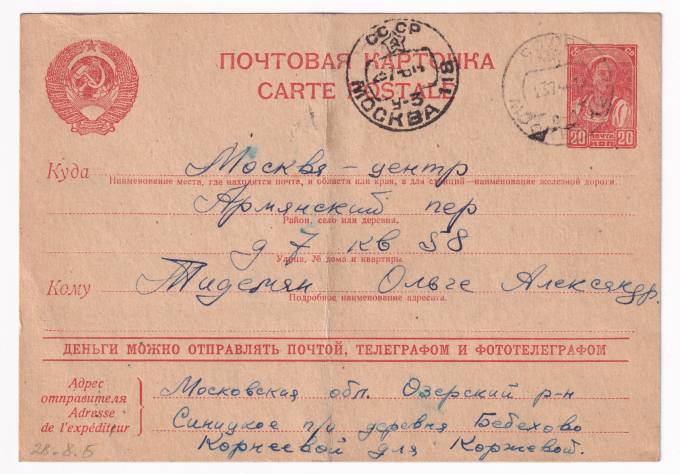 СССР
МОСКВА
ПОЧТОВАЯ КАРТОЧКА
CARTE POSTALE
ПОЧТА
20 КОП 20
Куда Москва - центр
Наименование места, где находится почта, и области или края, а для станций—наименование железной дороги.
Армянский пер
Район, село или деревня.
д 7 кв 58
Улица, № дома и квартиры.
Кому Тидеман Ольге Александр.
Подробное наименование адресата.
ДЕНЬГИ МОЖНО ОТПРАВЛЯТЬ ПОЧТОЙ, ТЕЛЕГРАФОМ И ФОТОТЕЛЕГРАФОМ
Адрес отправителя
Adresse de l'expéditeur
Московская обл. Озерский р-н
Синицкое п/о деревня Бебехово
Корнеевой для Коржевой.
28-8.5